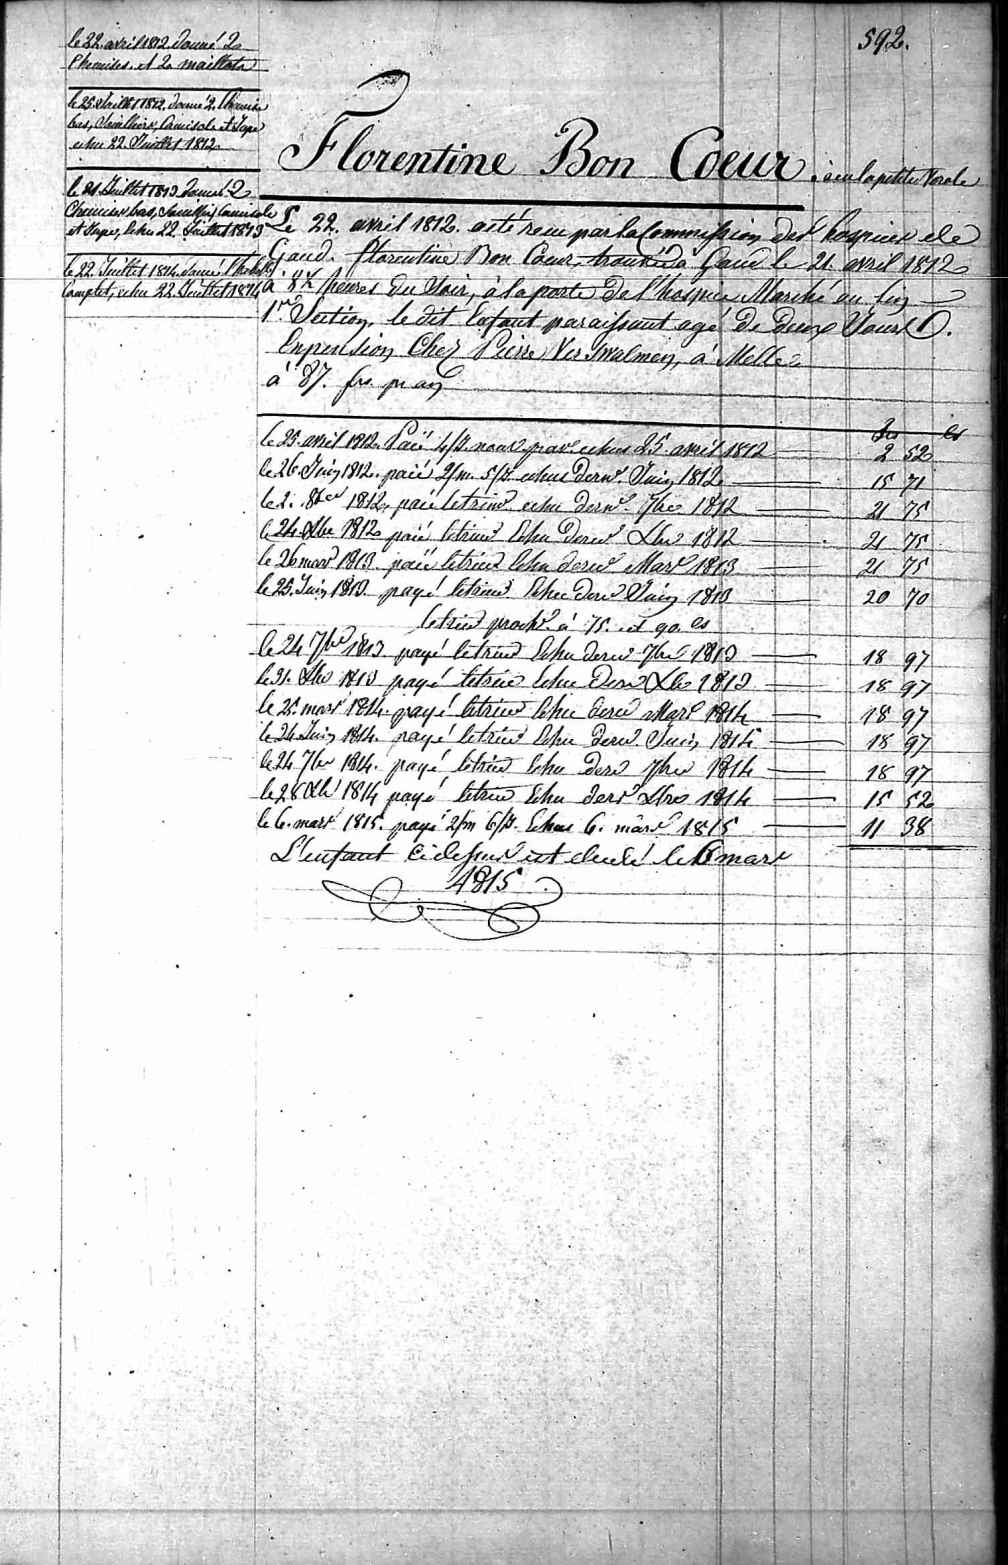 592.
le 22 avril 1812 donné 2
Chemises et 2 maillots
le 25 Juillet 1812, donné 2 Chemise
bas, Souilliers, Camisole et Jupe
echu 22 Juillet 1812
le 21 Juillet 1813 donné 2
Chemises bas, Souillers, Camisole
et Jupe, echu 22 Juillet 1813
le 22 Juillet 1814 donné l'habill
Complet, echu 22 Juillet 1814
Florentine Bon Coeur
a eu la petite Verole
Le 22. avril 1812. a été recu par la Commission des hospices de
Gand. Florentine Bon Coeur, trouvé à Gand le 21 avril 1812
à 8½ heures du Soir, à la porte de l'hospice Marché au lin
1re Section. le dit Enfant paraissant agé De Deux Jours.
En pension Chez Pierre Verswalmen, à Melle
à 87. frs. pr an
frs cs
le 25. avril 1812 Paié 4/3. echus 25. avril 1812 2 52
le 26 Juin 1812. paié 2/m. 5/3. echus dernr. Juin 1812 15 71
le 2. 8bre 1812, paié le trimr echu dernr. 7bre 1812 21 75
le 24 Xbre 1812 paié le trimr Echu dernr Xbre 1812 21 75
le 26 mars 1813 paié le trimr Echu dernr Mars 1813 21 75
le 25. Juin 1813. payé le trimr Echu dernr Juin 1813 20 70
le trim prochn. à 75. et 90. cs
le 24 7bre 1813 payé le trimr Echu dernr 7bre 1813 18 97
le 21. Xbre 1813 payé le trimr Echu dernr Xbre 1813 18 97
le 25 mars 1814. payé le trimr Echu dernr Mars 1814 18 97
le 24 Juin 1814. payé le trimr Echu dernr. Juin 1814 18 97
le 24 7bre 1814. payé le trimr Echu dernr 7bre 1814 18 97
le 28 Xbre 1814 payé le trimr Echu dernr Xbre 1814 15 52
le 6. mars 1815. payé 2/m 6/3. Echus 6. mars 1815 11 38
L'enfant Cidessus est décédé le 6 mars
1815